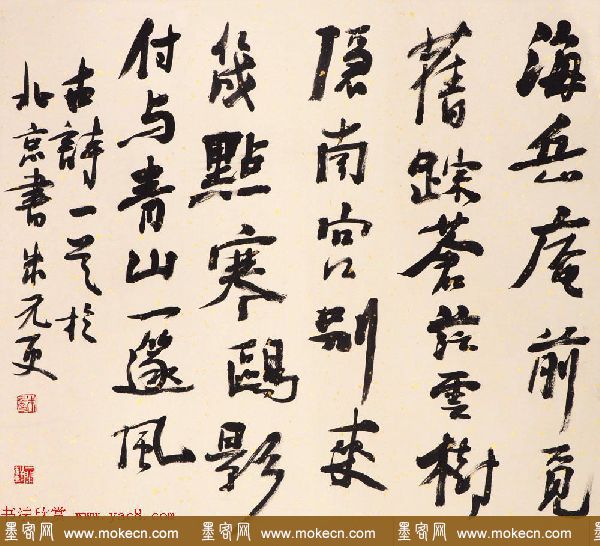 海岳庵前覓
舊踪蒼茫雲樹
隱南宮別來
幾點寒鷗影
付与青山一篴風
古詩一首於
北京書朱元更
书法欣赏 www.yac8.com
墨客网 www.mokecn.com 墨客网 www.mokecn.com 墨客网 www.mokecn.com